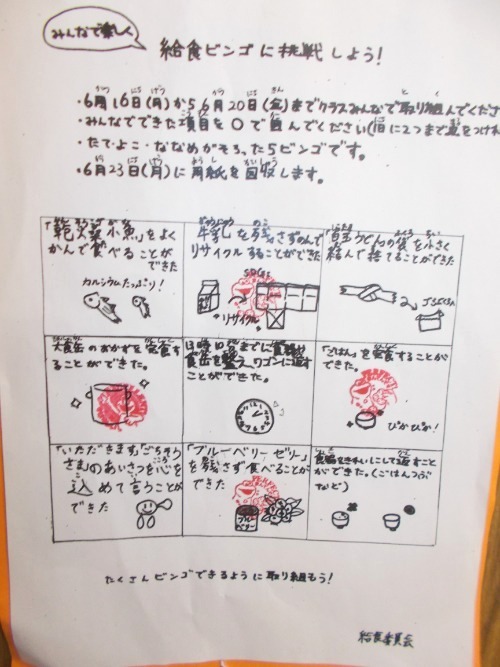 みんなで楽しく
給食ビンゴに挑戦しよう！
・6月16日(月)から6月20日(金)までクラスみんなで取り組んでくださ
・みんなでできた項目を○で囲んでください(1日に2つまで
・たて・よこ・ななめがそろったらビンゴです。
・6月23日(月)に用紙を回収します。
小魚」をよく
かんで食べることが
できた
カルシウムたっぷり！
牛乳を残さずのんで
リサイクルすることができた
SDGs
リサイクル
うどんの袋を小さく
結んで捨てることができた
大食缶のおかずを完食す
ることができた。
食缶を整え、ワゴンに返す
ことができた。
「ごはん」を完食することが
できた。
ぴかぴか！
「いただきます」「ごちそう
さま」のあいさつを心を
込めて言うことが
できた
「ブルーベリーゼリー」
を残さず食べることが
できた
ブルーベリー
食器をきれいにして返すこと
ができた。(ごはんつぶ
など)
たくさんビンゴできるように取り組もう！
給食委員会